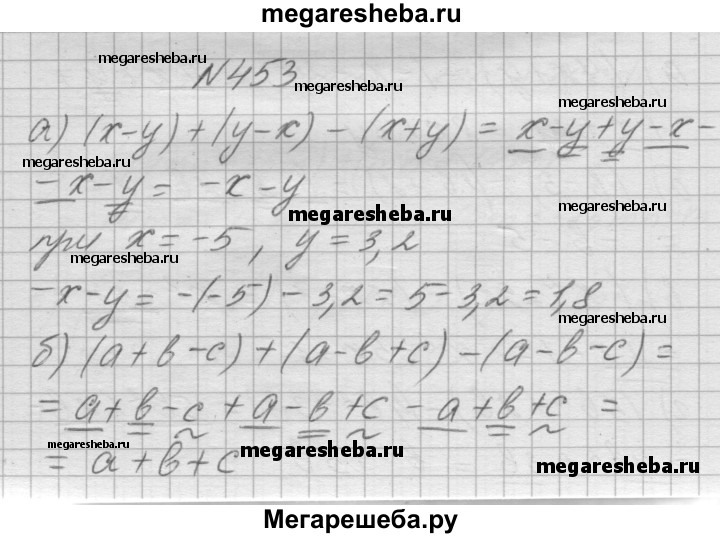 megaresheba.ru
megaresheba.ru
N 453
megaresheba.ru
megaresheba.ru
а) (x-y)+(y-x) - (x+y) = x-y+y-x-
megaresheba.ru
-x-y = -x-y
megaresheba.ru
при x = -5, y = 3,2
megaresheba.ru
-x-y = -(-5) - 3,2 = 5-3,2 = 1,8
megaresheba.ru
б) (a+b-c)+(a-b+c)-(a-b-c) =
megaresheba.ru
= a+b-c+a-b+c-a+b+c =
megaresheba.ru
megaresheba.ru
= a+b+c
megaresheba.ru
Мегарешеба.ру